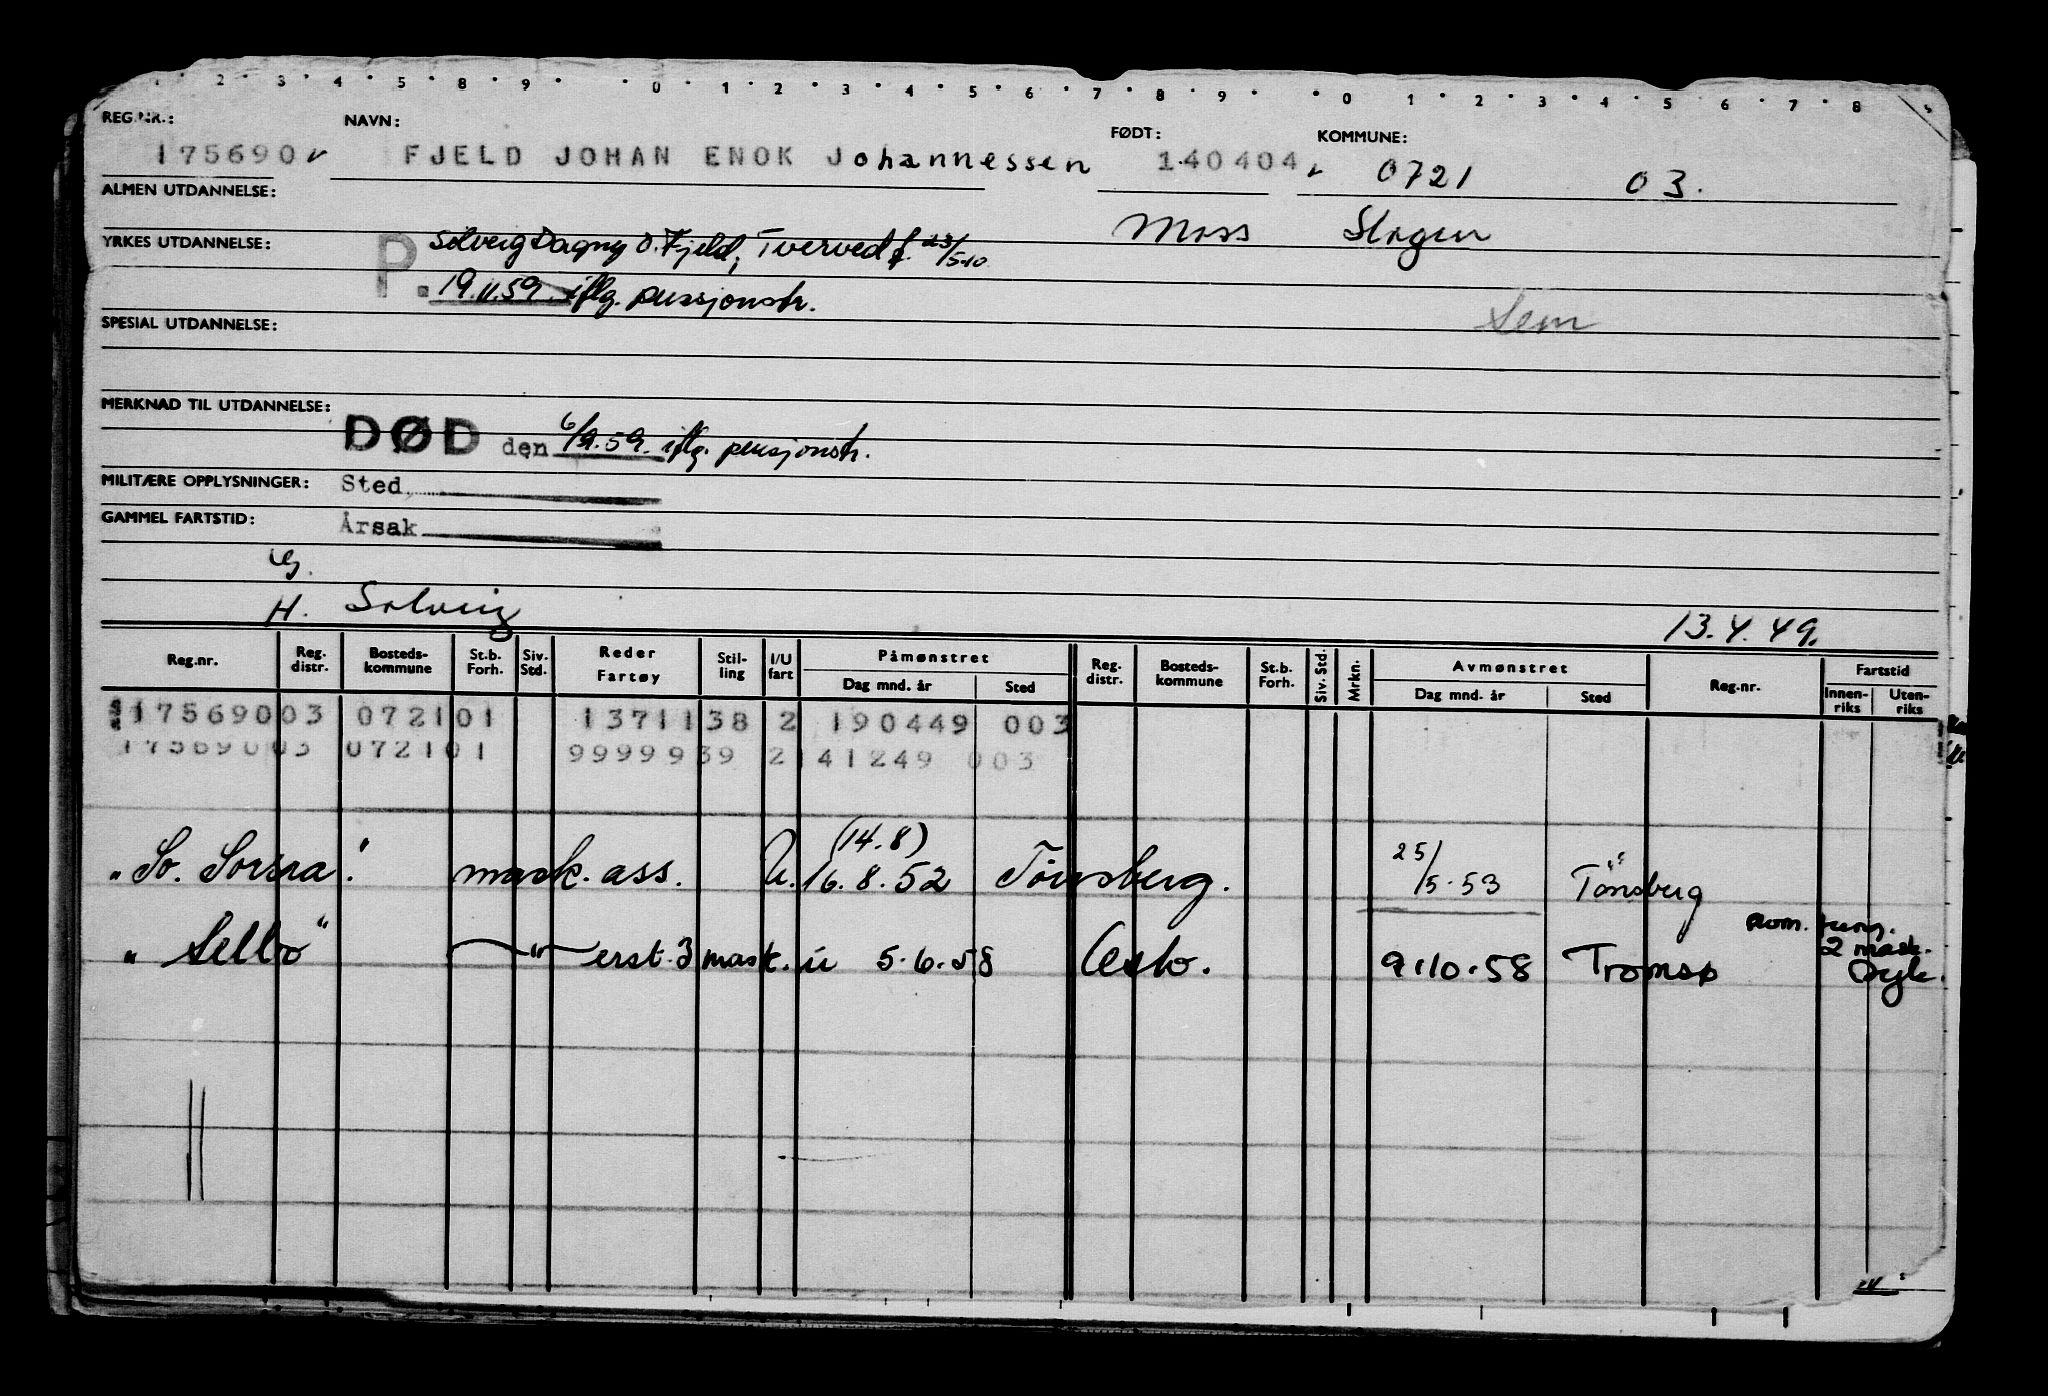 2 3 4 5 8 9 0 1 2 3 4 5 6 7 8 9 0 1 2 3 4 5 6 7 8
REG.NR.: NAVN: FØDT: KOMMUNE:
175690 FJELD JOHAN ENOK Johannessen 140404 0721 03.
ALMEN UTDANNELSE:
Moss Slagen
YRKES UTDANNELSE: P. Solveig Dagny O. Fjeld, Tverved f. 23/5-10
19.11.59 iflg. pensjonstr.
Sem
SPESIAL UTDANNELSE:
MERKNAD TIL UTDANNELSE:
DØD den 6/9.59. iflg. pensjonstr.
MILITÆRE OPPLYSNINGER: Sted
GAMMEL FARTSTID: Årsak
G.
H. Solveig 13.4.49.
Reg.nr. Reg. distr. Bosteds-kommune St.b. Forh. Siv. Std. Reder Fartøy Stil-ling I/U fart Påmønstret Reg. distr. Bosteds-kommune St.b. Forh. Siv. Std. Mrkn. Avmønstret Reg.nr. Fartstid
Dag mnd. år Sted Dag mnd. år Sted Innen-riks Uten-riks
17569003 072101 1371138 2 190449 003
17569003 072101 9999939 2 141249 003
(14.8)
"So. Sorsra." mask. ass. U. 16.8.52 Tönsberg. 25/5.53 Tönsberg
rom. tung.
2 mask.
"Sello" " erst. 3 mask. u 5.6.58 Oslo. 9.10.58 Tromsø Syk.